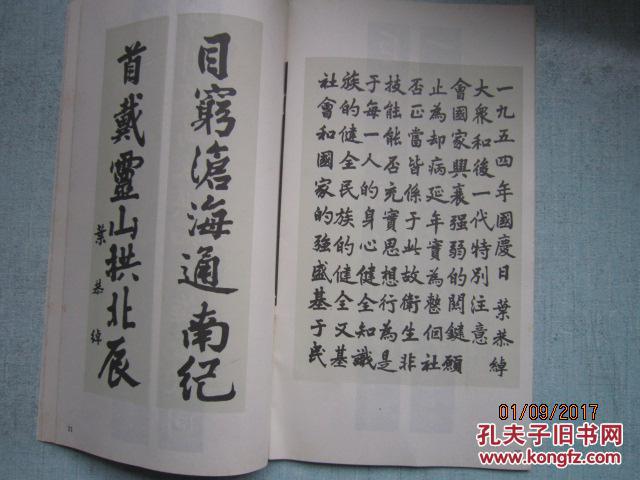 目窮滄海通南紀
首戴靈山拱北辰
葉恭綽
社會和國家的強盛基于民
族的健全民族的健全又基
于每一人的身心健全知識
技能能否充實思想行為是
否正當皆係于此故衛生非
止為却病延年實為整個社
會國家興衰强弱的関鍵願
大衆和後一代特別注意
一九五四年國慶日 葉恭綽
01/09/2017
孔夫子旧书网
www.kongfz.com